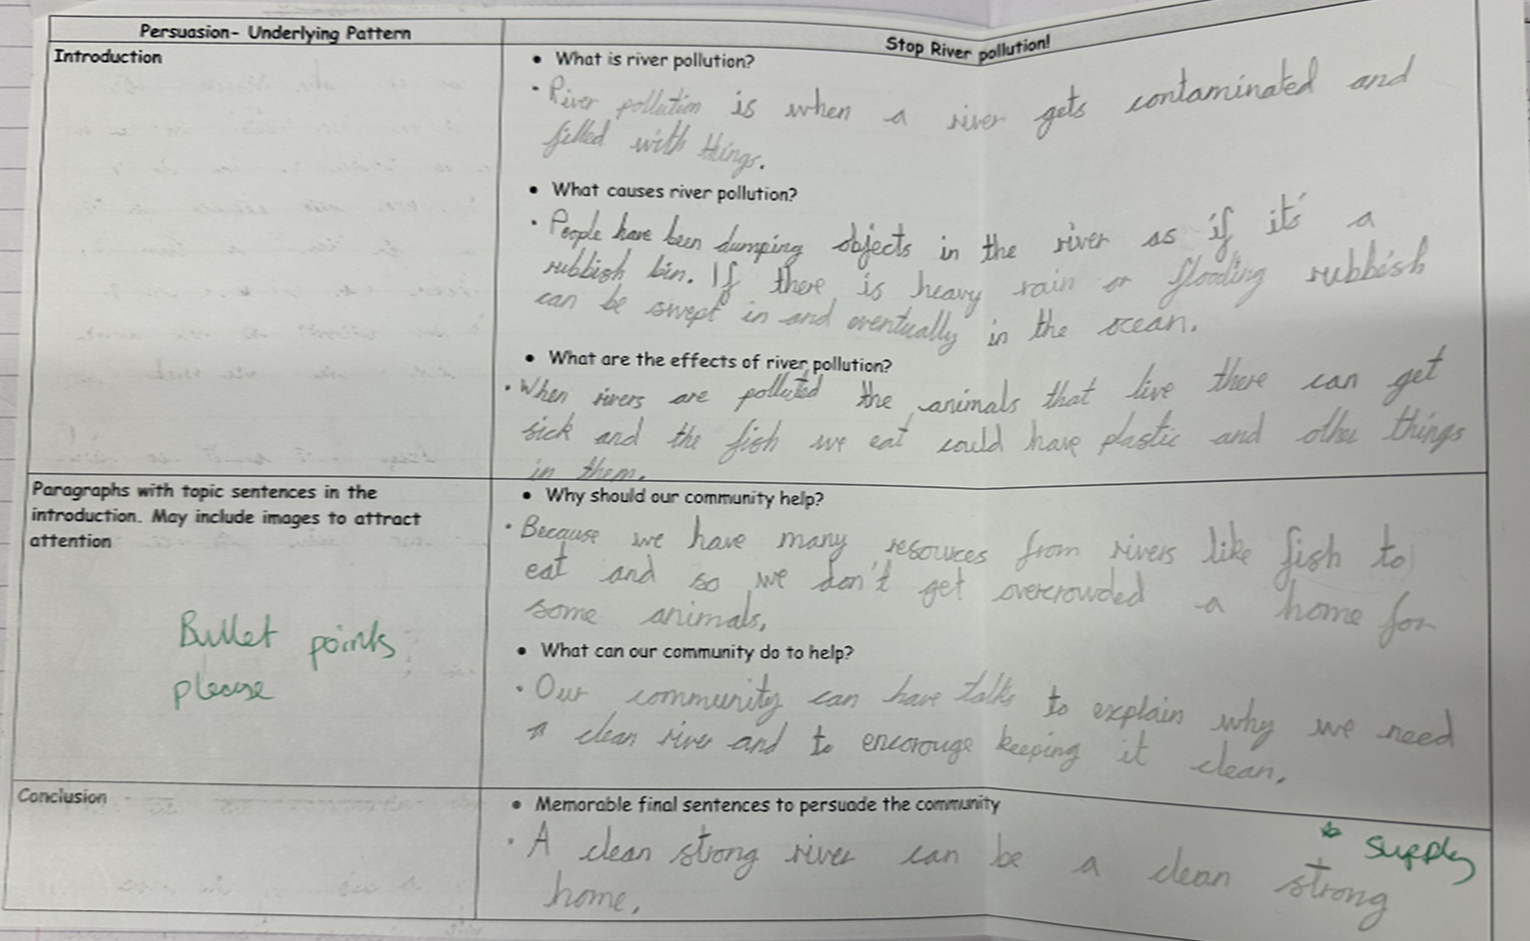 Persuasion- Underlying Pattern
Stop River pollution!
Introduction
• What is river pollution?
· River pollution is when a river gets contaminated and
filled with things.
• What causes river pollution?
· People have been dumping objects in the river as if its a
rubbish bin. If there is heavy rain or flooding rubbish
can be swept in and eventually in the ocean.
• What are the effects of river pollution?
· When rivers are polluted the animals that live there can get
sick and the fish we eat could have plastic and other things
in them.
Paragraphs with topic sentences in the
introduction. May include images to attract
attention
Bullet points
please
• Why should our community help?
· Because we have many resources from rivers like fish to
eat and so we don't get overcrowded a home for
some animals.
• What can our community do to help?
· Our community can have talks to explain why we need
a clean river and to encorouge keeping it clean.
Conclusion
• Memorable final sentences to persuade the community
* Supply
· A clean strong river can be a clean strong
home.